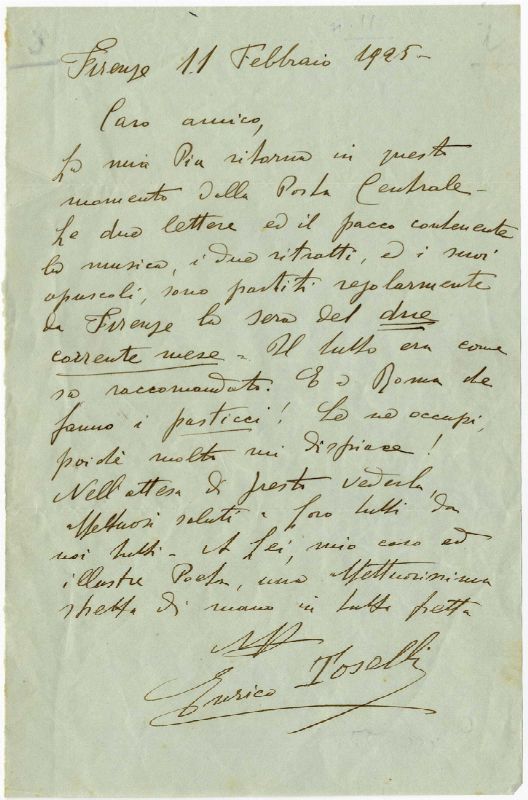 Firenze 11 Febbraio 1925-
Caro amico,
La mia Pia ritorna in questo
momento dalla Posta Centrale-
Le due lettere ed il pacco contenente
la musica, i due ritratti, ed i suoi
opuscoli, sono partiti regolarmente
da Firenze la sera del due
corrente mese - Il tutto era come
sa raccomandato. E a Roma che
fanno i pasticci! Se ne occupi,
poichè molto mi dispiace!
Nell'attesa di presto vederla,
affettuosi saluti a Loro tutti da
noi tutti - A Lei, mio caro ed
illustre Poeta, una affettuosissima
stretta di mano in tutta fretta
Enrico Toselli